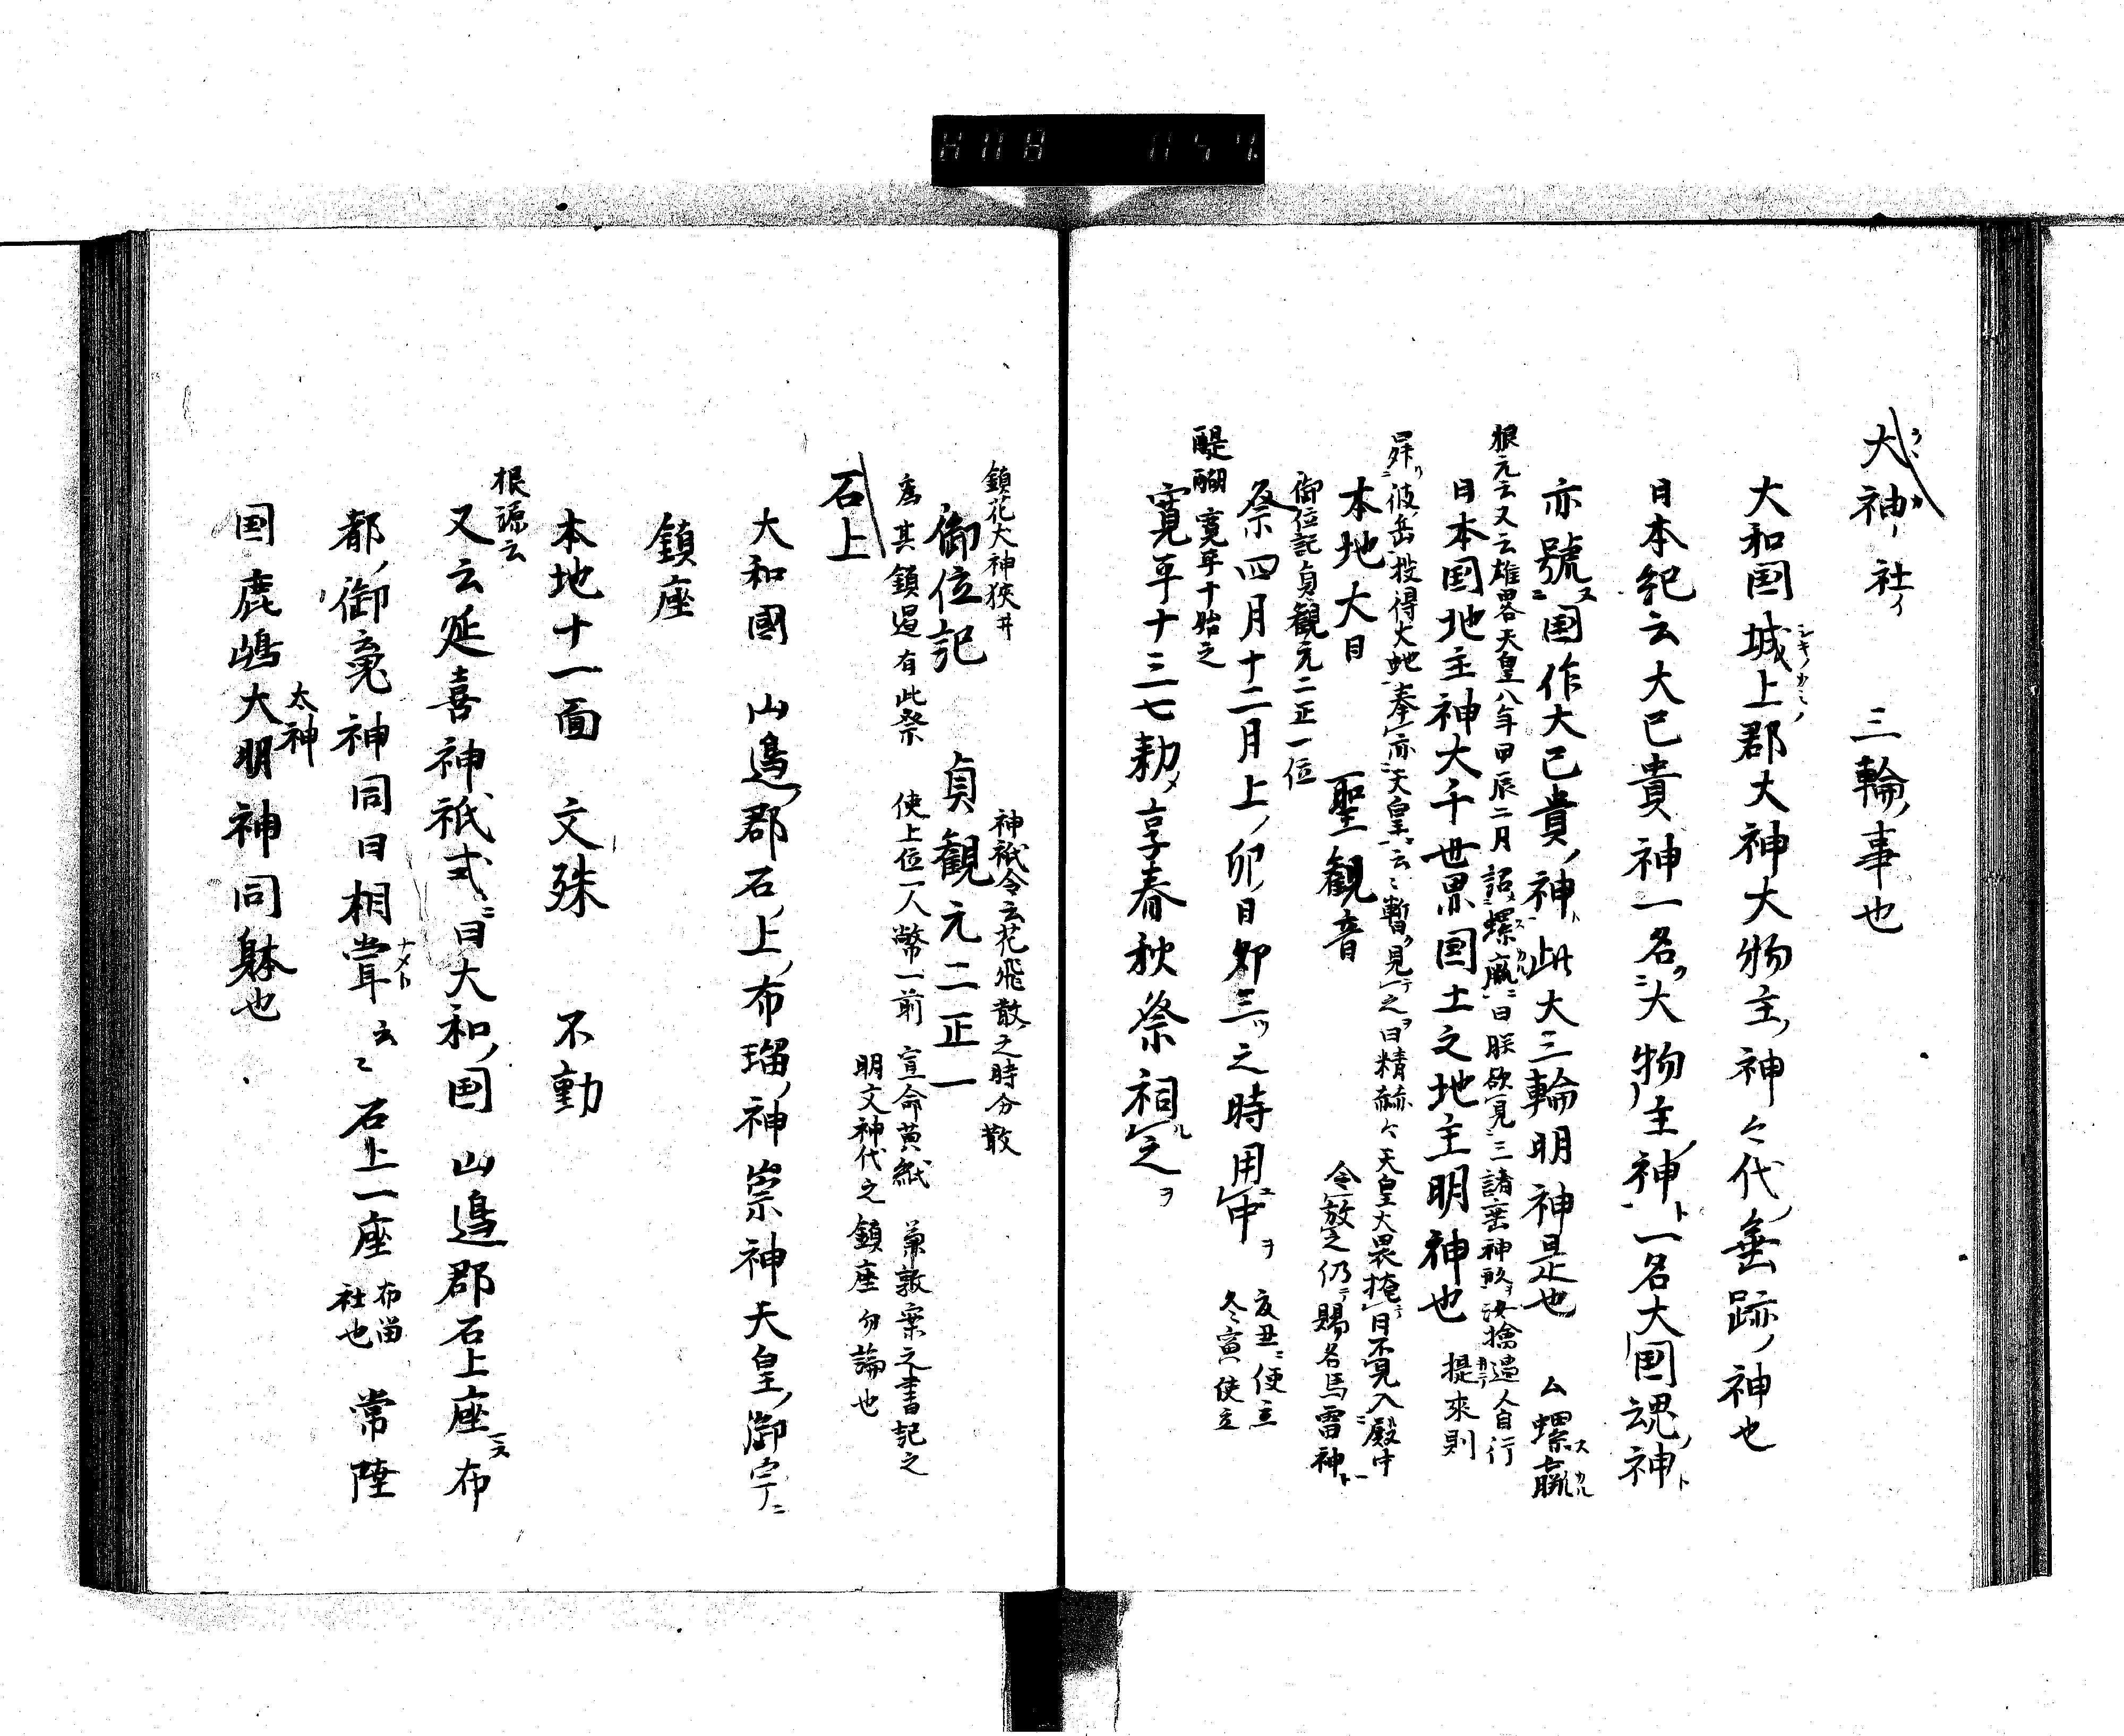 大神社 三輪事也
大和国城上郡大神大物主神々代垂跡神也
日本紀云大己貴神一名大物主神一名大国魂神
亦號国作大己貴神此大三輪明神是也 ム螺蠃
根元云又云雄畧天皇八年甲辰二月詔螺蠃曰朕欲見三諸岳神汝擒過人自行
日本国地主神大千世界国土之地主明神也 提來則
登彼岳投得大虵奉亦天皇云々暫見之曰精赫々天皇大畏掩目不見入殿中
本地大日 聖観音 令放之仍賜名爲雷神
御位記貞観元二正一位
祭四月十二月上卯日卯三之時用中 亥丑便立
冬寅使立
醍醐寛平十始之
寛平十三七勅享春秋祭祠之
鎮花大神狹井 神祇令云花飛散之時分散
御位記 貞観元二正一
為其鎮過有此祭 使上位一人幣一前 宣命黄紙
明文神代之鎮座勿論也
石上
大和國 山邉郡石上布瑠神崇神天皇御宇
鎮座
本地十一面 文殊 不動
根源云
又云延喜神祇式曰大和国 山邉郡石上座布
都御䰟神同日相嘗云々 石上一座 布留
社也 常陸
国鹿嶋大明神同躰也
太神